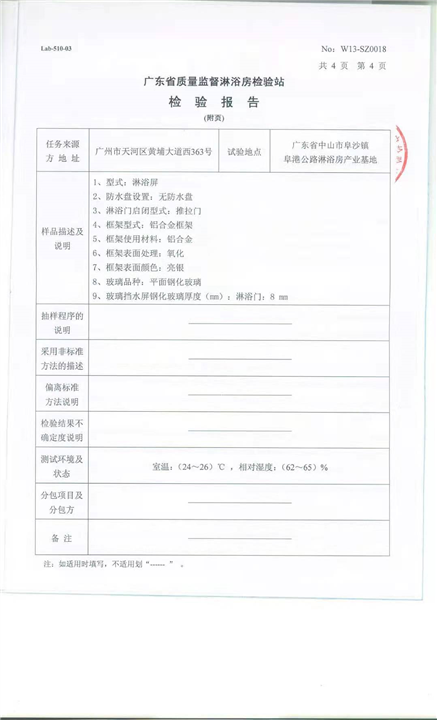 Lab-510-03
No: W13-SZ0018
共 4 页 第 4 页
广东省质量监督淋浴房检验站
检 验 报 告
(附页)
任务来源
方 地 址
广州市天河区黄埔大道西363号
试验地点
广东省中山市阜沙镇
阜港公路淋浴房产业基地
样品描述及
说明
1、型式：淋浴屏
2、防水盘设置：无防水盘
3、淋浴门启闭型式：推拉门
4、框架型式：铝合金框架
5、框架使用材料：铝合金
6、框架表面处理：氧化
7、框架表面颜色：亮银
8、玻璃品种：平面钢化玻璃
9、玻璃挡水屏钢化玻璃厚度（mm）：淋浴门：8 mm
抽样程序的
说明
采用非标准
方法的描述
偏离标准
方法说明
检验结果不
确定度说明
测试环境及
状态
室温：(24～26）℃ ，相对湿度：(62～65）%
分包项目及
分包方
备 注
注：如适用时填写，不适用划“------ ” 。